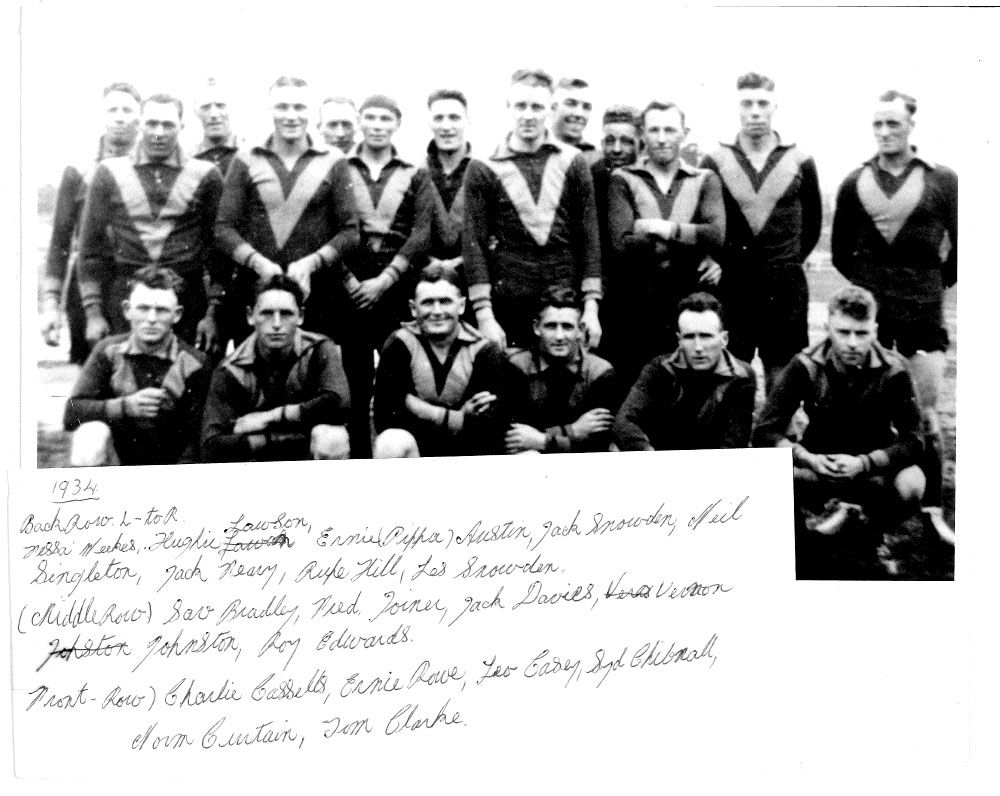 1934
Back Row. L - to R.
Nessa Weekes, Hughie Lawson, Ernie (Pippa) Austin, Jack Snowden, Neil
Singleton, Jack Neary, Rupe Hill, Les Snowden.
(Middle Row) Sav Bradley, Fred. Joiner, Jack Davies, Vernon
Johnston Johnston, Roy Edwards.
Front - Row) Charlie Cassells, Ernie Rowe, Leo Casey, Syd Chibnall,
Norm Curtain, Tom Clarke.